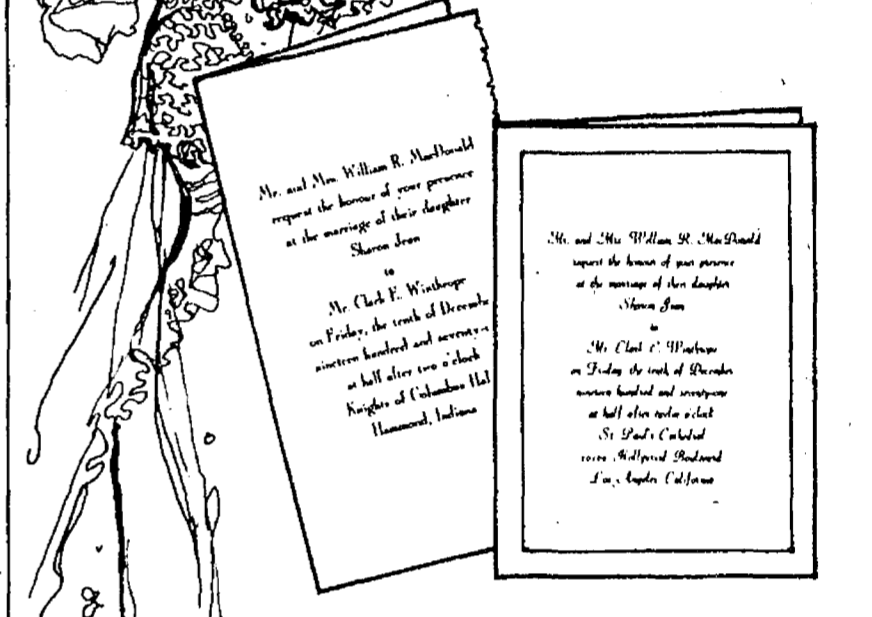 Mr. and Mrs. William R. MacDonald
request the honour of your presence
at the marriage of their daughter
Sharon Jean
to
Mr. Clark E. Winthrope
on Friday, the tenth of Decembe
nineteen hundred and seventy-
at half after two o'clock
Knights of Columbus Hal
Hammond, Indiana
Mr. and Mrs. William R. MacDonald
request the honour of your presence
at the marriage of their daughter
Sharon Jean
to
Mr. Clark E. Winthrope
on Friday the tenth of December
nineteen hundred and seventy-one
at half after twelve o'clock
St. Paul's Cathedral
Hollywood Boulevard
Los Angeles California